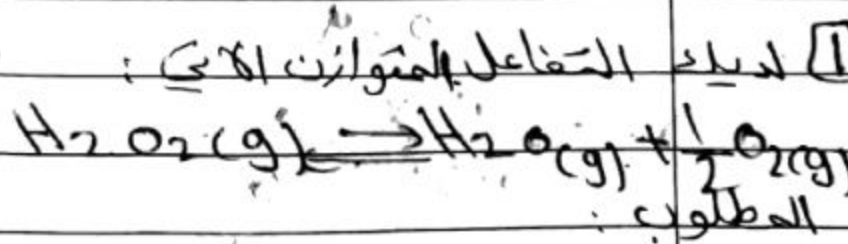 1 لديك التفاعل المتوازن الآتي :
H2O2(g) ⇌ H2O(g) + 1/2 O2(g)
المطلوب :